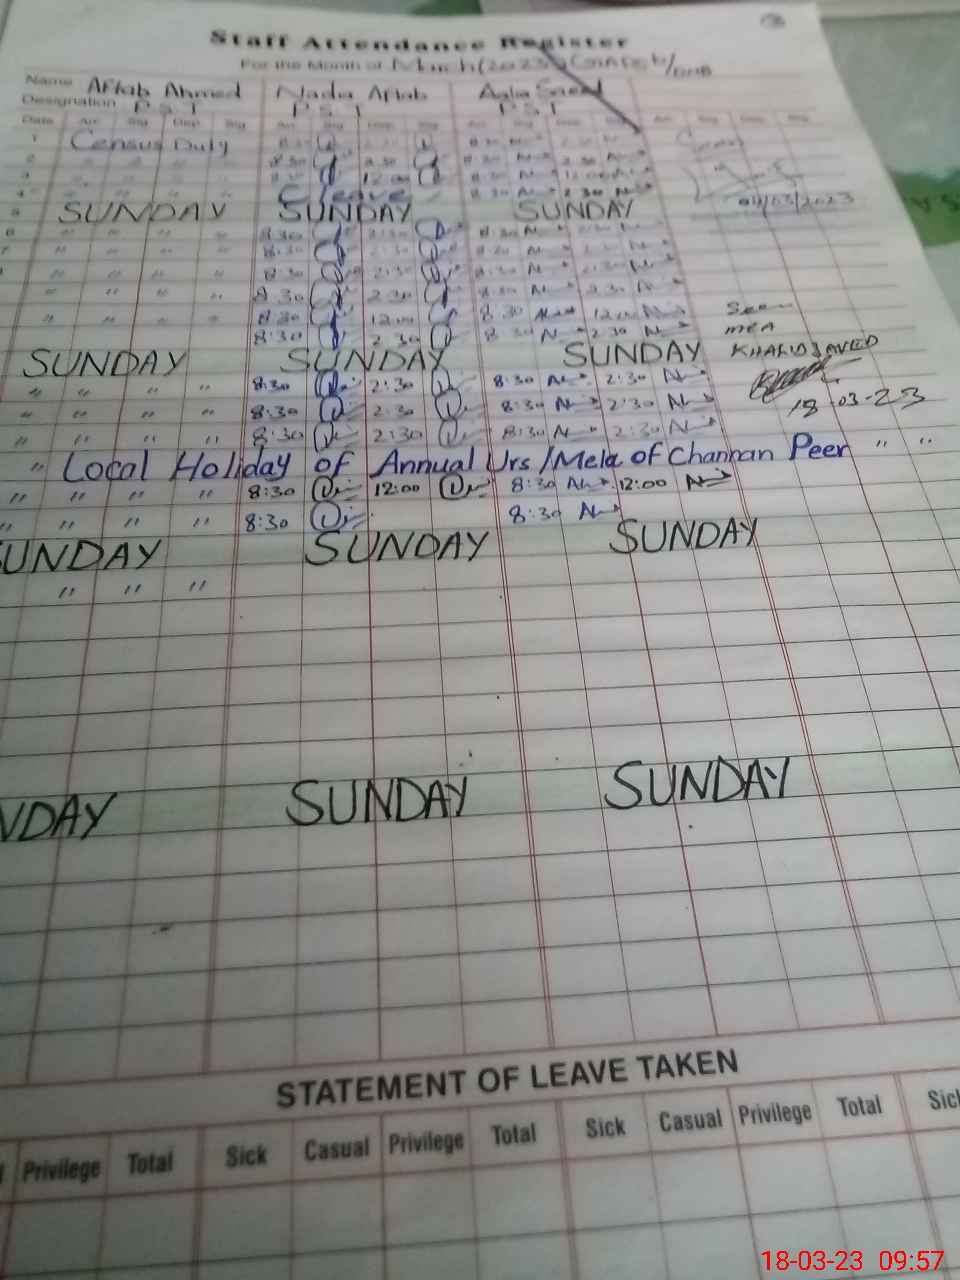 Staff Attendance Register
For the Month of March (2023)
Name Aftab Ahmed Nadia Aftab Aqba Saeed
Designation P.S.T P.S.T P.S.T
Date Arr Sig Dep Sig Arr Sig Dep Sig Arr Sig Dep Sig Arr Sig Dep Sig
1 Census Duty 8:30 2:30 8:30 2:30 Seen
2 " " " " 8:30 2:30 8:30 2:30
3 " " " " 8:30 12:00 8:30 12:00
4 " " " " C leave 8:30 2:30
04/03/2023
5 SUNDAY SUNDAY SUNDAY
6 " " " " 8:30 2:30 8:30 2:30
7 " " " " 8:30 2:30 8:30 2:30
" " " " 8:30 2:30 8:30 2:30
" " " " 8:30 2:30 8:30 2:30
" " " " 8:30 12:00 8:30 12:00 Seen
8:30 2:30 8:30 2:30 MEA
SUNDAY SUNDAY SUNDAY KHALID JAVED
" " " " 8:30 2:30 8:30 2:30
" " " " 8:30 2:30 8:30 2:30 18-03-23
" " " " 8:30 2:30 8:30 2:30
" Local Holiday of Annual Urs/Mela of Channan Peer " "
" " " " 8:30 12:00 8:30 12:00
" " " " 8:30 8:30
SUNDAY SUNDAY SUNDAY
" " "
NDAY SUNDAY SUNDAY
STATEMENT OF LEAVE TAKEN
Privilege Total Sick Casual Privilege Total Sick Casual Privilege Total Sick
18-03-23 09:57